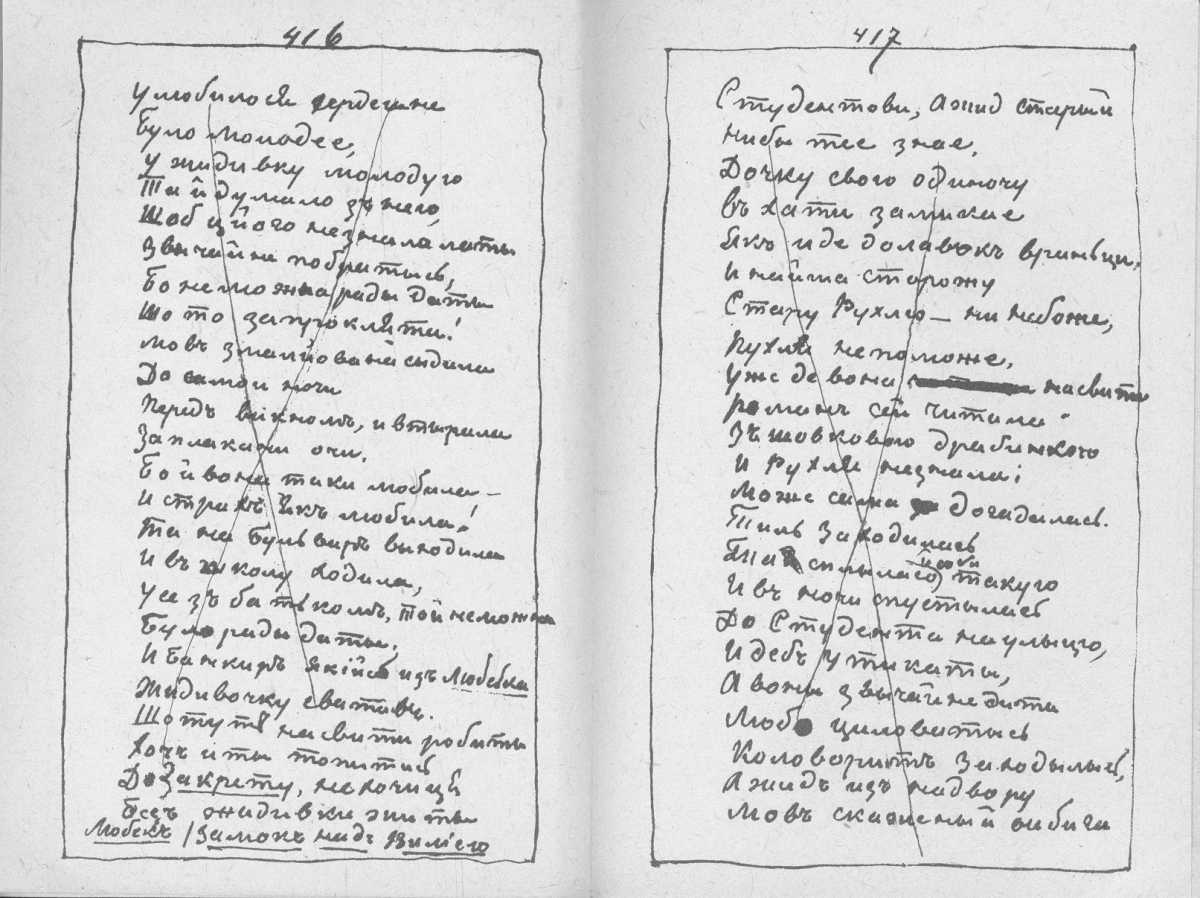 416
Улюбилося сердешне
Було молодее,
У жидивку молодую
Та й думало зъ нею,
Щоб цього незнала маты
Звычайне побратысь,
Бо не можна рады даты
Що то за прокляти!
Мовъ змалёована сыдила
До самои ночи
Передъ викномъ, и втырала
Заплакани очи.
Бо й вона таки любила –
И страхъ якъ любила!
Та на бульваръ выходила
И въ школу ходила,
Усе зъ батькомъ, то й неможна
Було рады даты,
И банкиръ якійсь изъ Любека
Жидивочку сватавъ.
Що тутъ насвити робыты
Хочъ иты топитись
До Закрету, не хочицьця
Безъ жидивки житы
Любекъ / Замокъ надъ Вилією
417
Студентови, А жид старый
Ниби тее знае,
Дочку свою одиночу
Въ хати замикае
Якъ иде до лавокъ вранци,
И найма сторожу
Стару Рухлю — ни небоже,
Рухля непоможе,
Уже де вона насвити
романъ сей читала
Зъ шовковою драбинкою
И Рухля незнала;
Може сама догадалась.
Тилъ заходилась
сплыла собѣ такую
И въ ночи спустылась
До Студента на улыцю,
И дебъ утикаты,
А воны звычайне диты
Любо циловатысь
Коловоритъ заходылысь,
А жидъ изъ надвору
Мовъ скаженый выбига